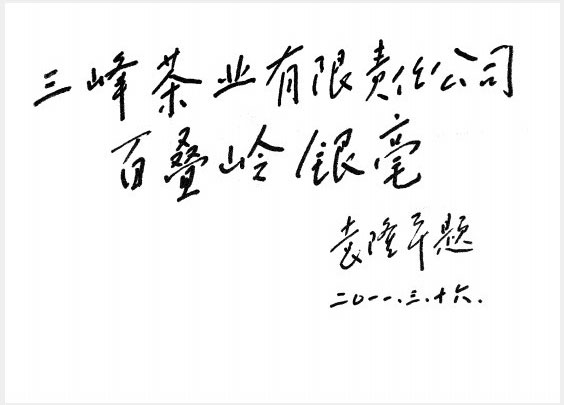 三峰茶业有限责任公司
百叠岭银毫
袁隆平题
二〇一一.三.十六.